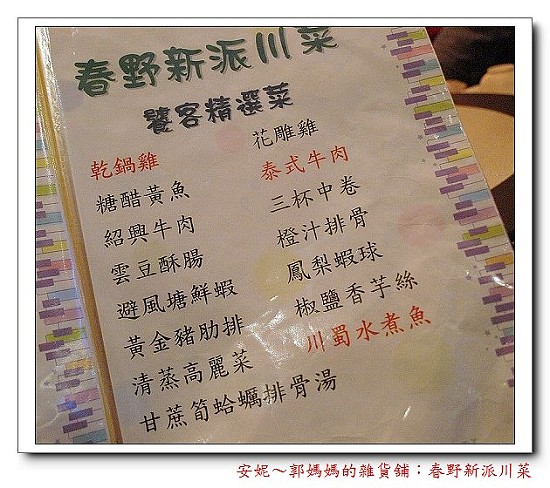 春野新派川菜
饕客精選菜
花雕雞
乾鍋雞
泰式牛肉
糖醋黃魚
三杯中卷
紹興牛肉
橙汁排骨
雲豆酥腸
鳳梨蝦球
避風塘鮮蝦
椒鹽香芋絲
黃金豬肋排
川蜀水煮魚
清蒸高麗菜
甘蔗筍蛤蠣排骨湯
安妮～郭媽媽的雜貨舖：春野新派川菜